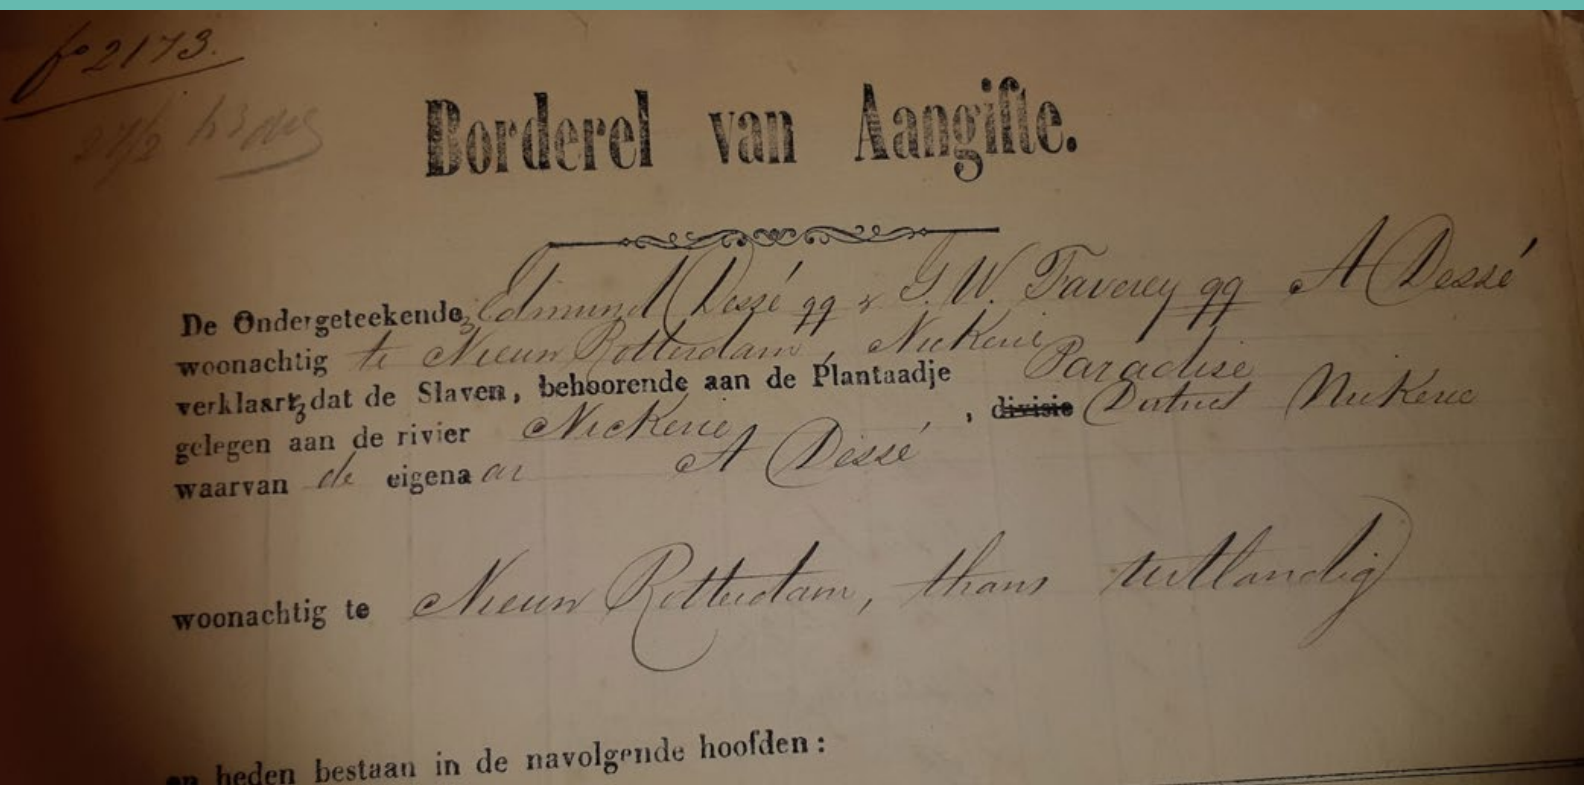 fo 2173.
Borderel van Aangifte.
De Ondergeteekende, Edmund Dessé qq & G. W. Taverey qq A Dessé
woonachtig te Nieuw Rotterdam, Nickerie
verklaart dat de Slaven, behoorende aan de Plantaadje Paradise
gelegen aan de rivier Nickerie, divisie District Nickerie
waarvan de eigenaar A Dessé
woonachtig te Nieuw Rotterdam, thans uitlandig
heden bestaan in de navolgende hoofden: